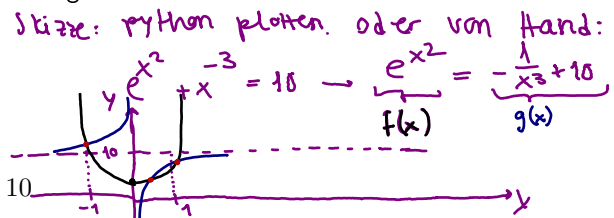 Skizze: python plotten. oder von Hand:
e^{x^2} + x^{-3} = 10 → e^{x^2} = -\frac{1}{x^3} + 10
f(x) g(x)
y
10
10
-1 1 x